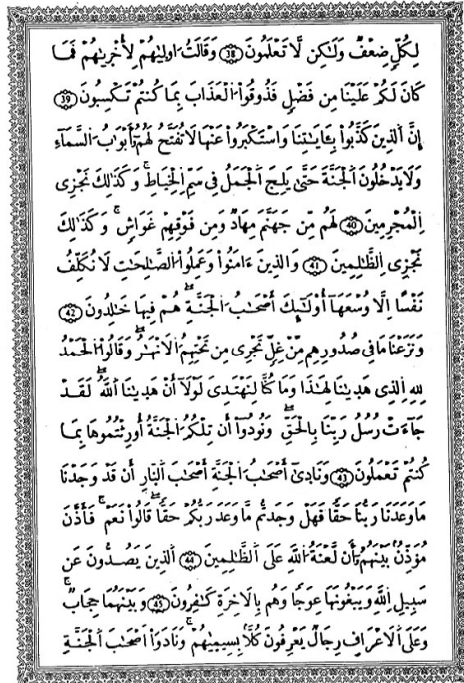 لِكُلٍّ ضِعْفٌ وَلَٰكِن لَّا تَعْلَمُونَ 38 وَقَالَتُ اولِيٰهُمْ لِأُخْرِيٰهُمْ فَمَا
كَانَ لَكُمْ عَلَيْنَا مِن فَضْلٍ فَذُوقُوا الْعَذَابَ بِمَا كُنتُمْ تَكْسِبُونَ 39
إِنَّ الَّذِينَ كَذَّبُوا بِـَٔايَٰتِنَا وَاسْتَكْبَرُوا عَنْهَا لَا تُفَتَّحُ لَهُمُ أَبْوَابُ السَّمَآءِ
وَلَا يَدْخُلُونَ الْجَنَّةَ حَتَّىٰ يَلِجَ الْجَمَلُ فِي سَمِّ الْخِيَاطِ وَكَذَٰلِكَ نَجْزِي
الْمُجْرِمِينَ 40 لَهُم مِّن جَهَنَّمَ مِهَادٌ وَمِن فَوْقِهِمْ غَوَاشٍ وَكَذَٰلِكَ
نَجْزِي الظَّٰلِمِينَ 41 وَالَّذِينَ ءَامَنُوا وَعَمِلُوا الصَّٰلِحَٰتِ لَا نُكَلِّفُ
نَفْسًا اِلَّا وُسْعَهَا أُوْلَٰٓئِكَ أَصْحَٰبُ الْجَنَّةِ هُمْ فِيهَا خَٰلِدُونَ 42
وَنَزَعْنَا مَا فِي صُدُورِهِم مِّنْ غِلٍّ تَجْرِي مِن تَحْتِهِمُ الْأَنْهَٰرُ وَقَالُوا الْحَمْدُ
لِلهِ الَّذِي هَدِيٰنَا لِهَٰذَا وَمَا كُنَّا لِنَهْتَدِيَ لَوْلَا أَنْ هَدِيٰنَا اللَّهُ لَقَدْ
جَآءَتْ رُسُلُ رَبِّنَا بِالْحَقِّ وَنُودُوا أَن تِلْكُمُ الْجَنَّةُ أُورِثْتُمُوهَا بِمَا
كُنتُمْ تَعْمَلُونَ 43 وَنَادِيٰ أَصْحَٰبُ الْجَنَّةِ أَصْحَٰبَ النَّارِ أَن قَدْ وَجَدْنَا
مَا وَعَدَنَا رَبُّنَا حَقًّا فَهَلْ وَجَدتُّم مَّا وَعَدَ رَبُّكُمْ حَقًّا قَالُوا نَعَمْ فَأَذَّنَ
مُؤَذِّنٌ بَيْنَهُمُ أَن لَّعْنَةُ اللَّهِ عَلَى الظَّٰلِمِينَ 44 الَّذِينَ يَصُدُّونَ عَن
سَبِيلِ اللَّهِ وَيَبْغُونَهَا عِوَجًا وَهُم بِالْأَخِرَةِ كَٰفِرُونَ 45 وَبَيْنَهُمَا حِجَابٌ
وَعَلَى الْأَعْرَافِ رِجَالٌ يَعْرِفُونَ كُلًّا بِسِيمِيٰهُمْ وَنَادَوْا أَصْحَٰبَ الْجَنَّةِ